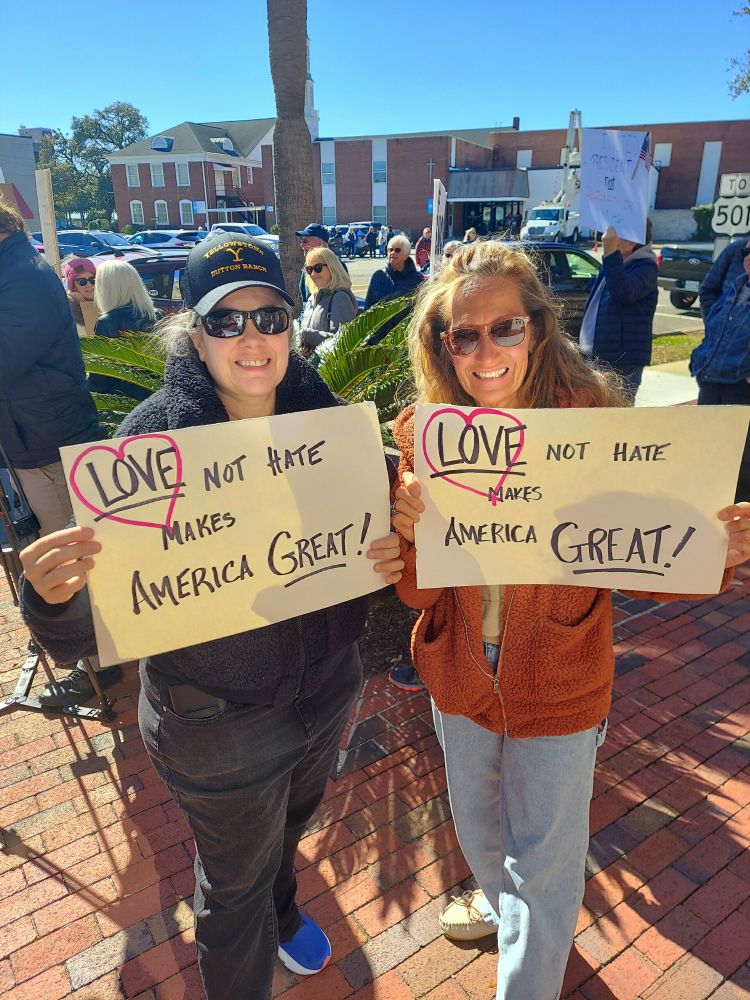 YELLOWSTONE
Y
DUTTON RANCH
LOVE NOT HATE
MAKES
AMERICA GREAT!
LOVE NOT HATE
MAKES
AMERICA GREAT!
PRESIDENT
not
TO
501